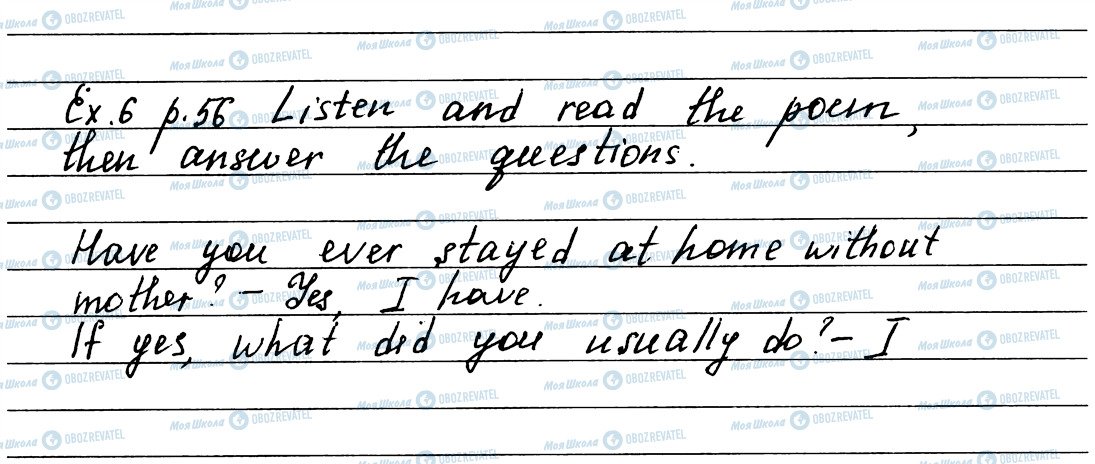 Ex.6 p.56 Listen and read the poem,
then answer the questions.
Have you ever stayed at home without
mother? - Yes, I have.
If yes, what did you usually do? - I
Моя Школа OBOZREVATEL